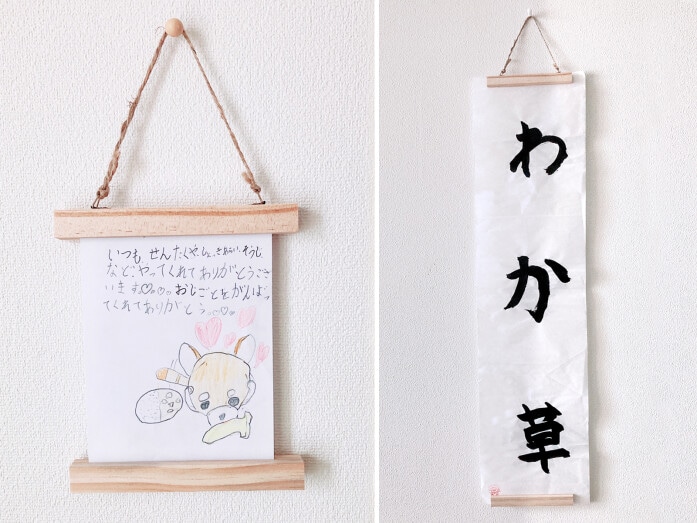 いつも、せんたくや、しょっきあらい、そうじ
などをやってくれてありがとうござ
います♡。♡。おしごとをがんばっ
てくれてありがとう。♡。
わか草